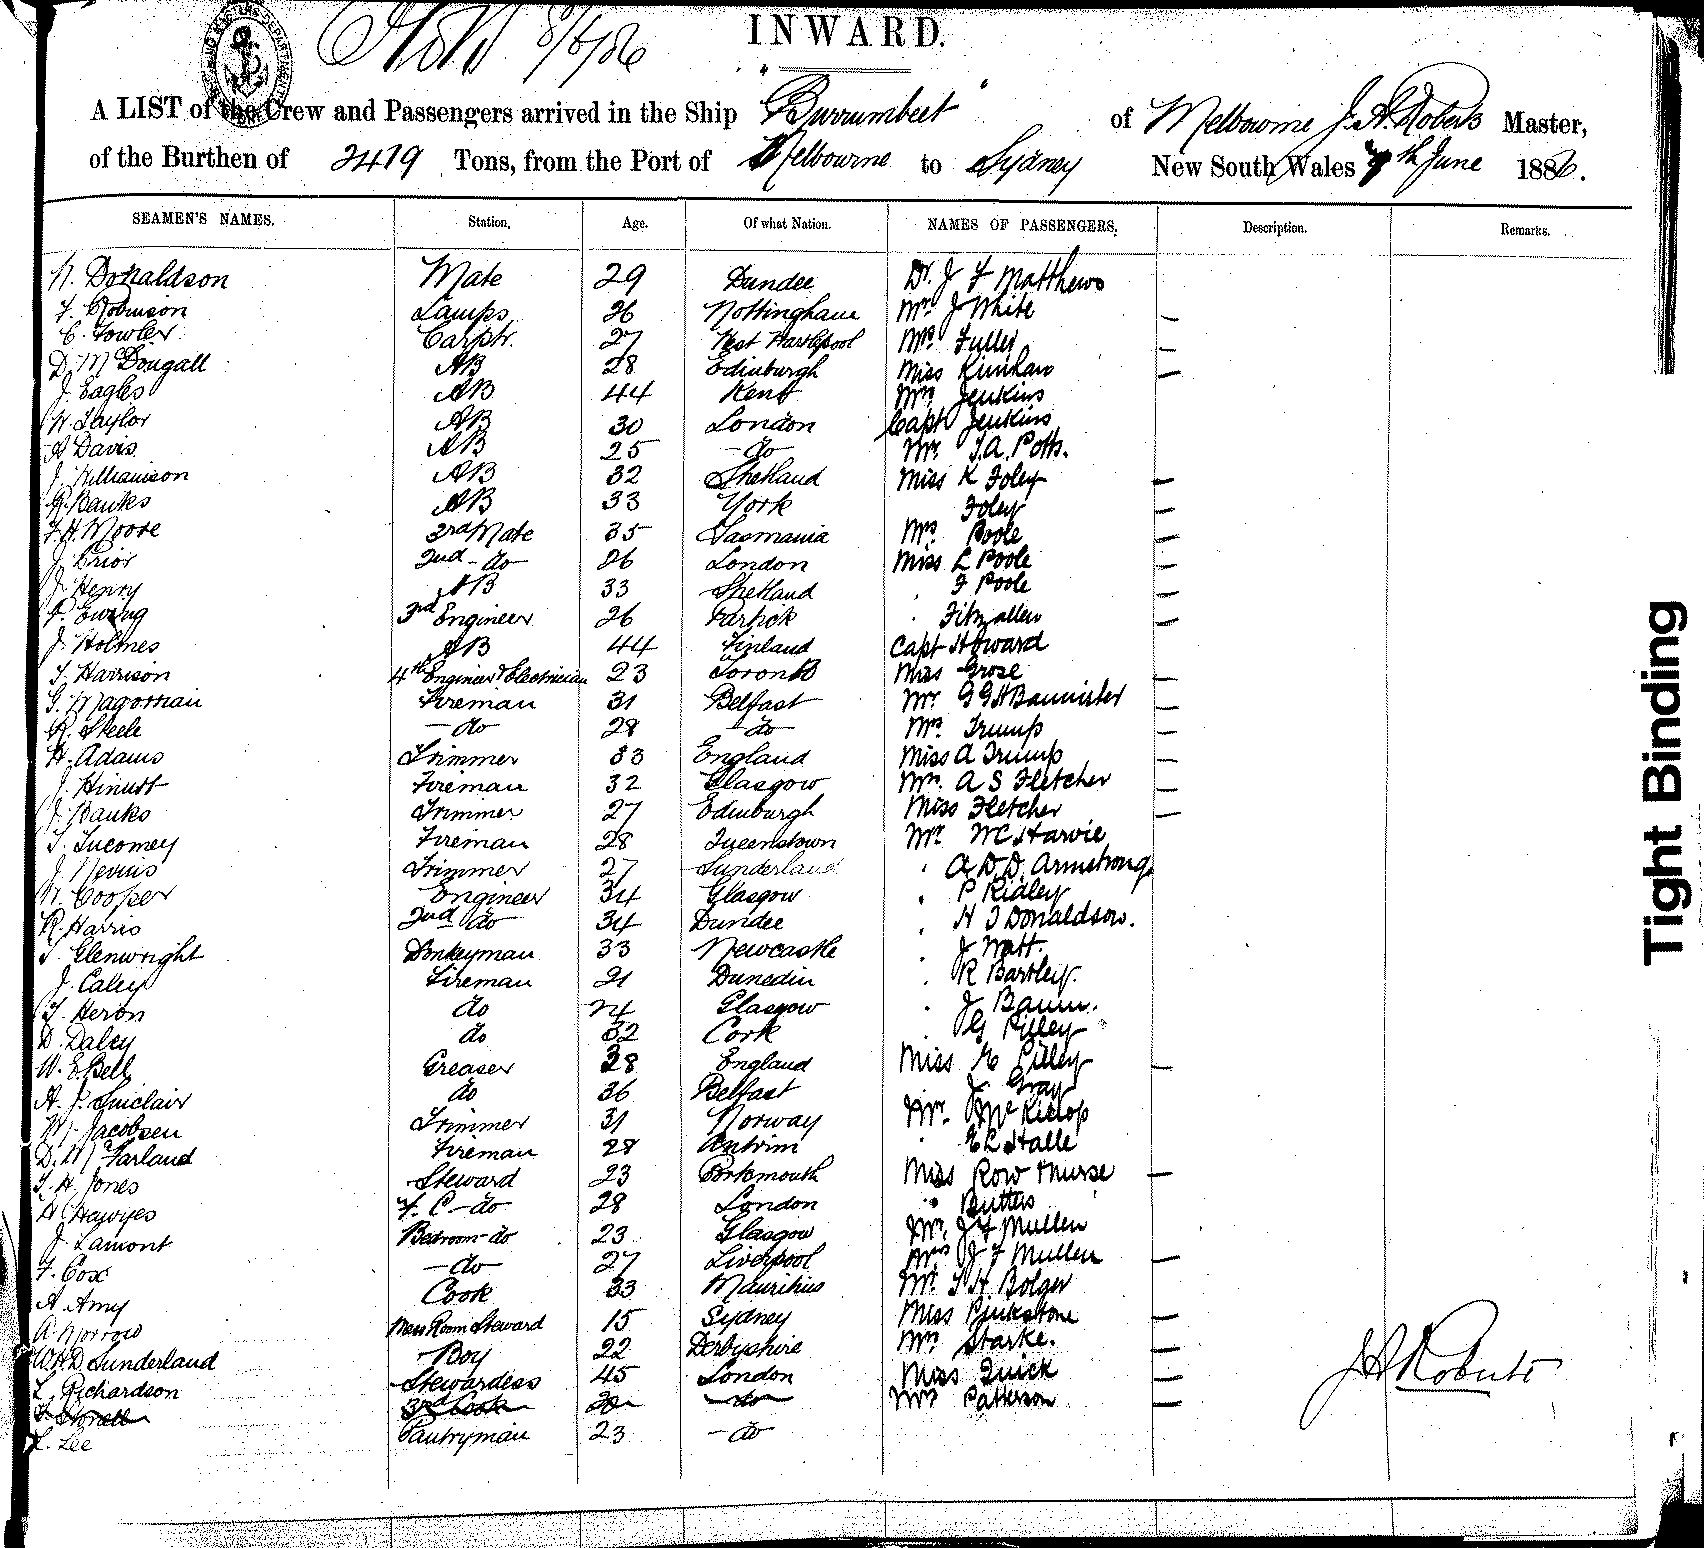 INWARD.
A LIST of the Crew and Passengers arrived in the Ship "Burrumbeet" of Melbourne J. A. Roberts Master,
of the Burthen of 2419 Tons, from the Port of Melbourne to Sydney New South Wales 7th June 1886.
SEAMEN'S NAMES. Station. Age. Of what Nation. NAMES OF PASSENGERS. Description. Remarks.
N. Donaldson Mate 29 Dundee Dr. J F Matthews
F. Robinson Lamps 26 Nottingham Mr J White
C. Fowler Carptr. 27 West Hartlepool Mrs Fuller
D. McDougall AB 28 Edinburgh Miss
J. Eagles AB 44 Kent Mrs Jenkins
W. Taylor AB 30 London Capt Jenkins
A Davis AB 25 - do Mr. T.A. Potts.
J. Williamson AB 32 Shetland Miss K Foley
R. Banks AB 33 York Foley
F. H. Moore 3rd Mate 35 Tasmania Mrs Poole
J. Prior 2nd - do 26 London Miss L Poole
J. Henry AB 33 Shetland F Poole
P. Ewing 3rd Engineer 26 Partick Fitzallen
J. Holmes AB 44 Finland Capt Howard
T. Harrison 4th Engineer & Electrician 23 Toronto Miss Grose
G. Fireman 31 Belfast Mr G G H Bannister
R. Steele - do 28 - do Mrs Trump
H. Adams Trimmer 33 England Miss A Trump
J. Fireman 32 Glasgow Mrs. A S Fletcher
J. Banks Trimmer 27 Edinburgh Miss Fletcher
T. Tucomey Fireman 28 Queenstown Mr W C Harvie
J. Nevins Trimmer 27 Sunderland " A. D. D. Armstrong
W. Cooper Engineer 34 Glasgow " P Ridley
R. Harris 2nd do 34 Dundee " H J Donaldson.
T. Glenwright Donkeyman 33 Newcastle " J Watt.
J. Caley Fireman 21 Dunedin " R Bartley.
T. Heron do 24 Glasgow " J
D. Daley do 32 Cork " G Pilley
W. E. Bell Greaser 28 England Miss E Pilley
A. J. Sinclair do 36 Belfast J. Gray
W. Jacobsen Trimmer 31 Norway Mr. McKillop
D. McFarland Fireman 28 Antrim " E L Halle
F. H. Jones Steward 23 Portsmouth Miss Row & Nurse
H. Hawyes F. C - do 28 London " Butters
J. Lamont Bedroom - do 23 Glasgow Mr. J F Mullen
F. Cox - do 27 Liverpool Mrs J F Mullen
A. Amy Cook 33 Mauritius Mr. T H Bolger
A. Morrow Mess Room Steward 15 Sydney Miss Pinkstone
W H D. Sunderland Boy 22 Derbyshire Mrs Starke.
L. Richardson Stewardess 45 London Miss Quick
3rd Cook - do Mrs Patterson
L. Lee Pantryman 23 - do
J A Roberts
Tight Binding